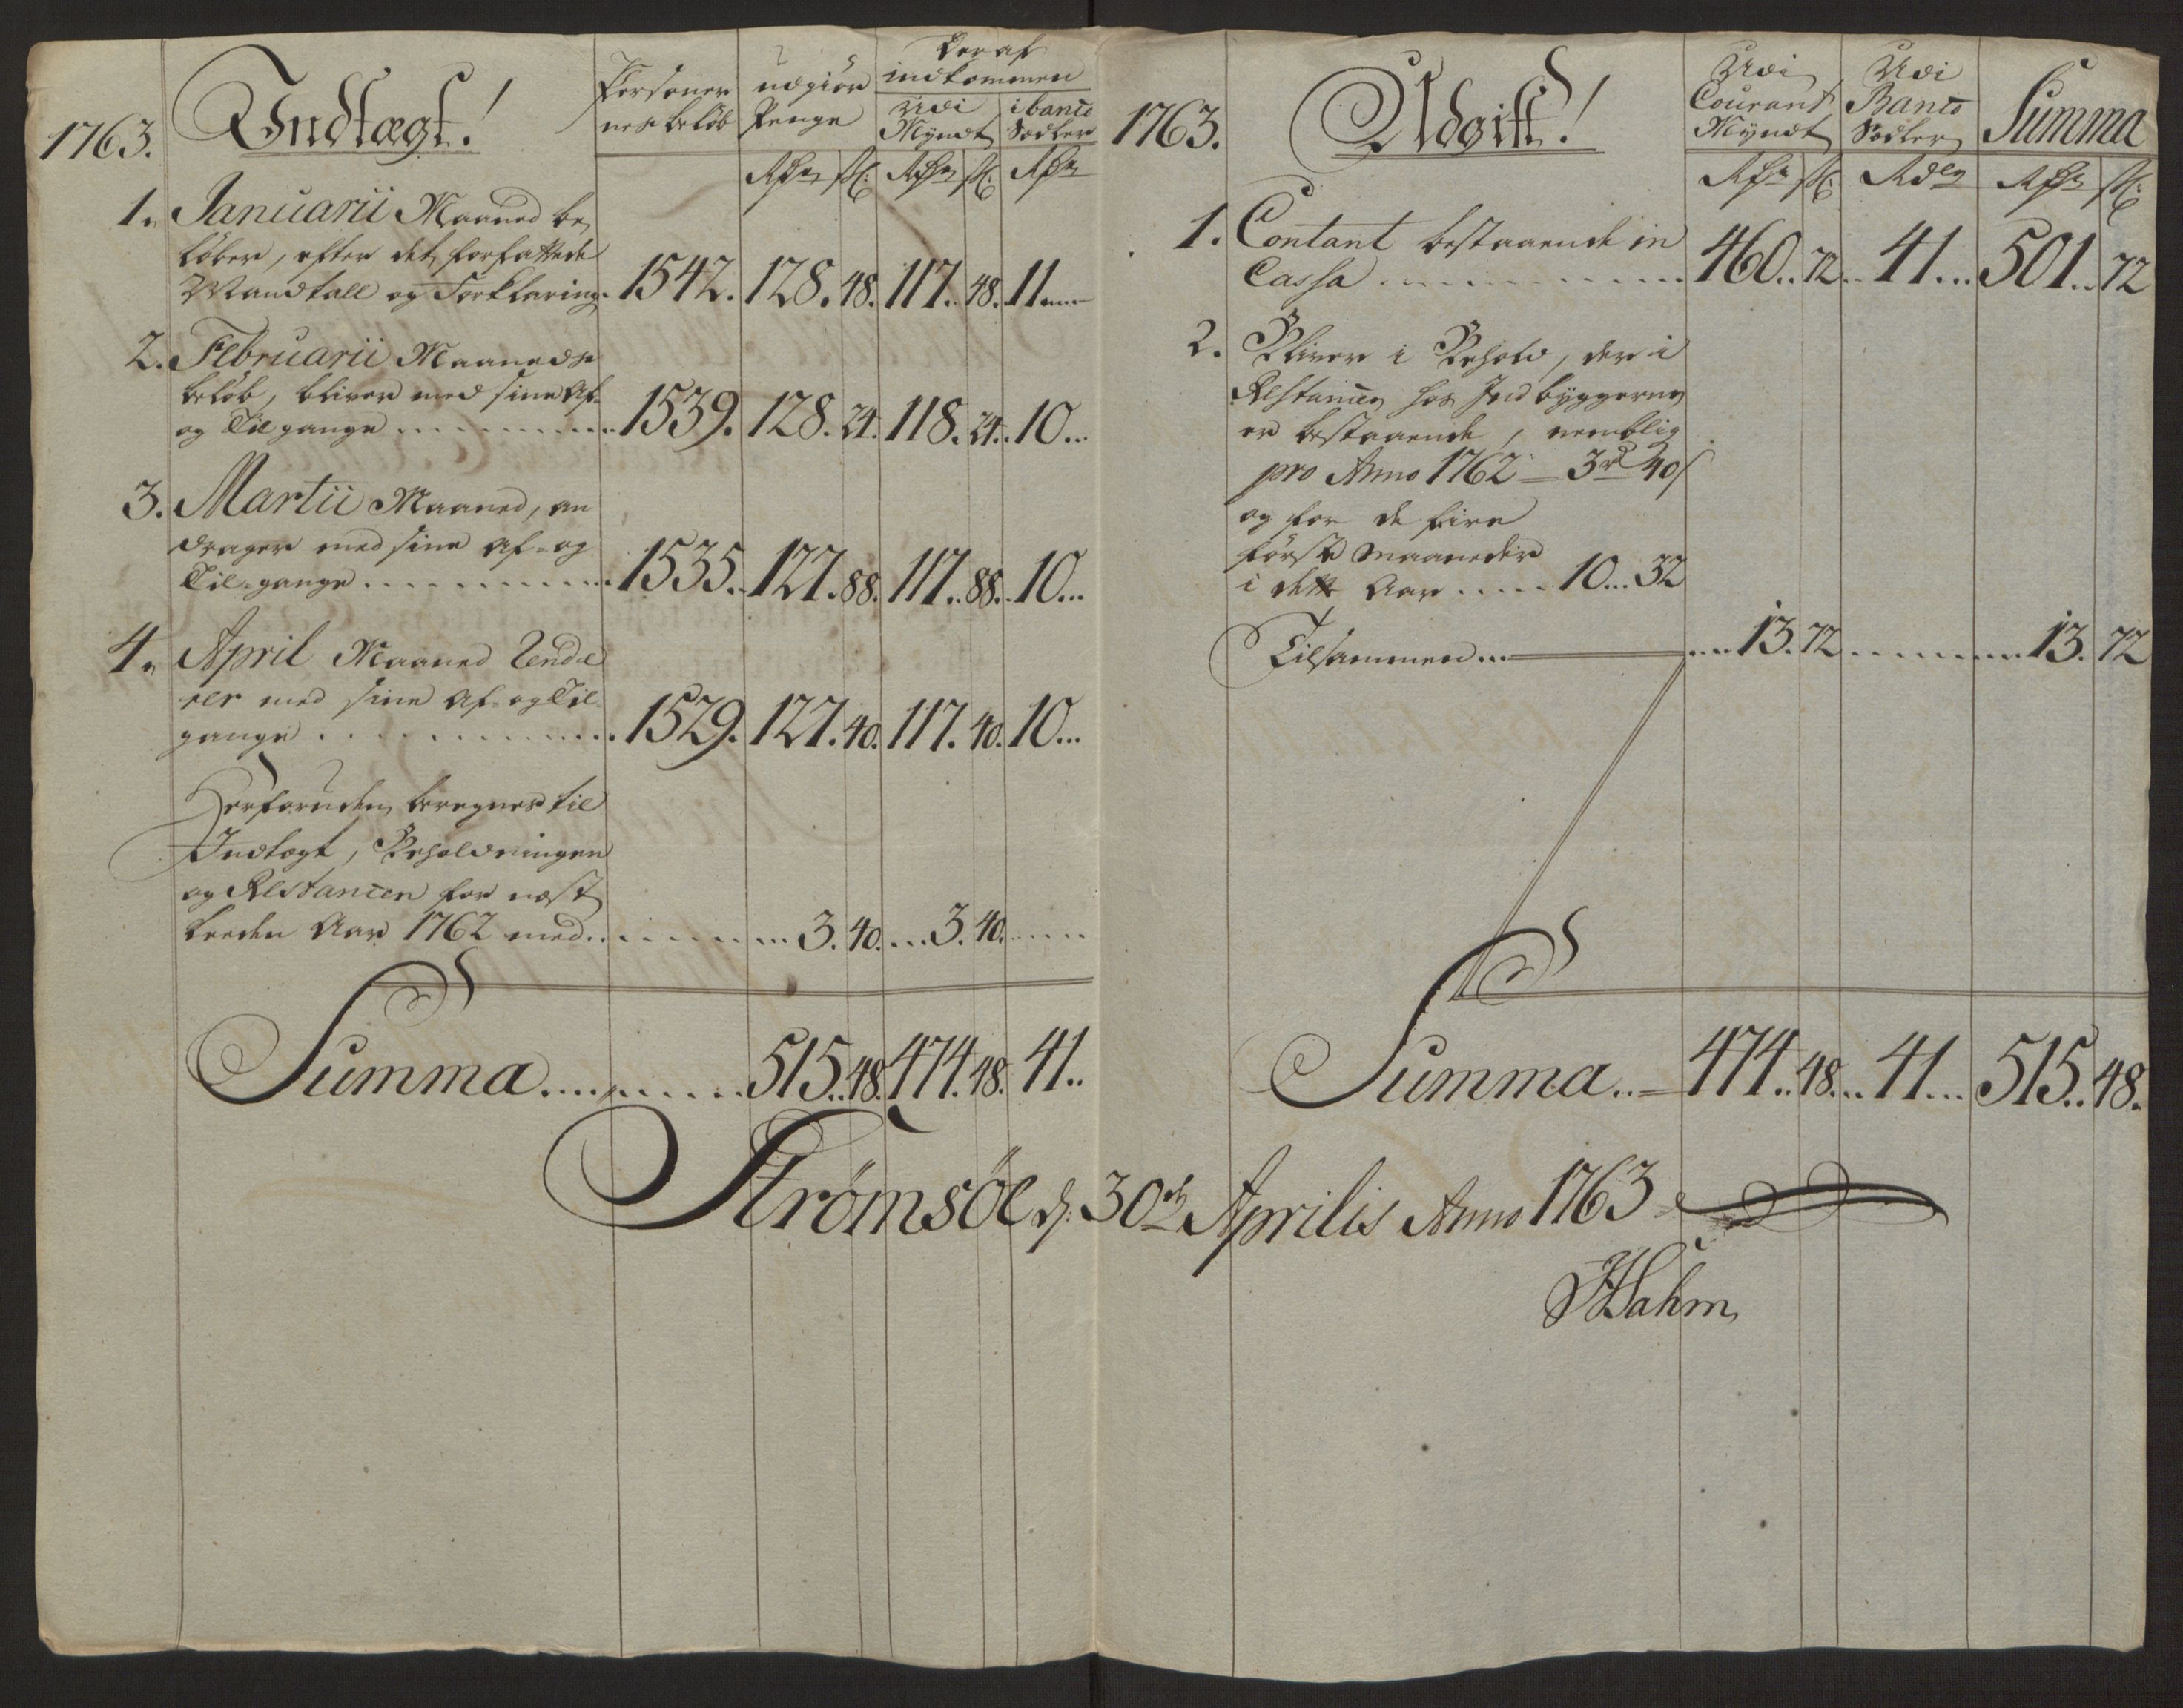 1763.
Indtægt!
Personer
nes beløb
udgiør
Penge
Deraf
indkommen
Udi
Myndt
i banco
Sedler
Rdr ſk: Rdr ſk: Rdr
1. Januarii Maaned be
løber, efter det forfattede
Mandtall og Forklaring. 1542. 128. 48. 117. 48. 11
2. Februarii Maaneds
beløb, bliver med sine Af-
og Tilgange 1539. 128. 24. 118. 24. 10
3. Martii Maaned, an
drager med sine Af- og
Til-gange 1535. 127. 88. 117. 88. 10
4. April Maaned
med sine Af- og Til
gange 1529. 127. 40. 117. 40. 10
Herforuden beregnes til
Indtægt, Beholdningen
og Restancen for næst
Aar 1762 med 3. 40. 3. 40.
Summa 515. 48. 474. 48. 41
1763.
Udgift!
Udi
Courant
Myndt
Udi
Banco
Sedler
Summa
Rdr ſk: Rdlr Rdr ſk:
1. Contant bestaaende in
Cassa 460. 72 41 501. 72
2. Bliver i Behold, der i
Restancer hos Indbyggerne
er bestaaende, nemblig
pro Anno 1762 = 3rd 40ſ
og for de fire
første Maaneder
i dette Aar 10 32
Tilsammen 13. 72 13. 72
Summa 474. 48 41 515. 48.
Strømsöe d: 30te Aprilis Anno 1763